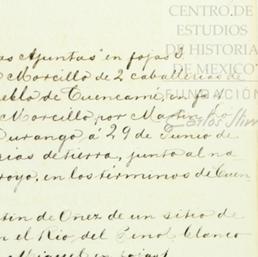 CENTRO DE
ESTUDIOS
DE HISTORIA
DE MEXICO
FUNDACIÓN
Carlos Slim
as Ajuntas" en fojas 3
Morcillo de 2 caballerias de
eblo de Cuencamé, en fo
Morcillo, por Martin
Durango á 29 de Junio de
rias de tierra, junto al na
rroyo, en los terminos de Cuen
tin de Oñez de un sitio de
n el Rio del Peno, Clanco
Miguel en fojas 1